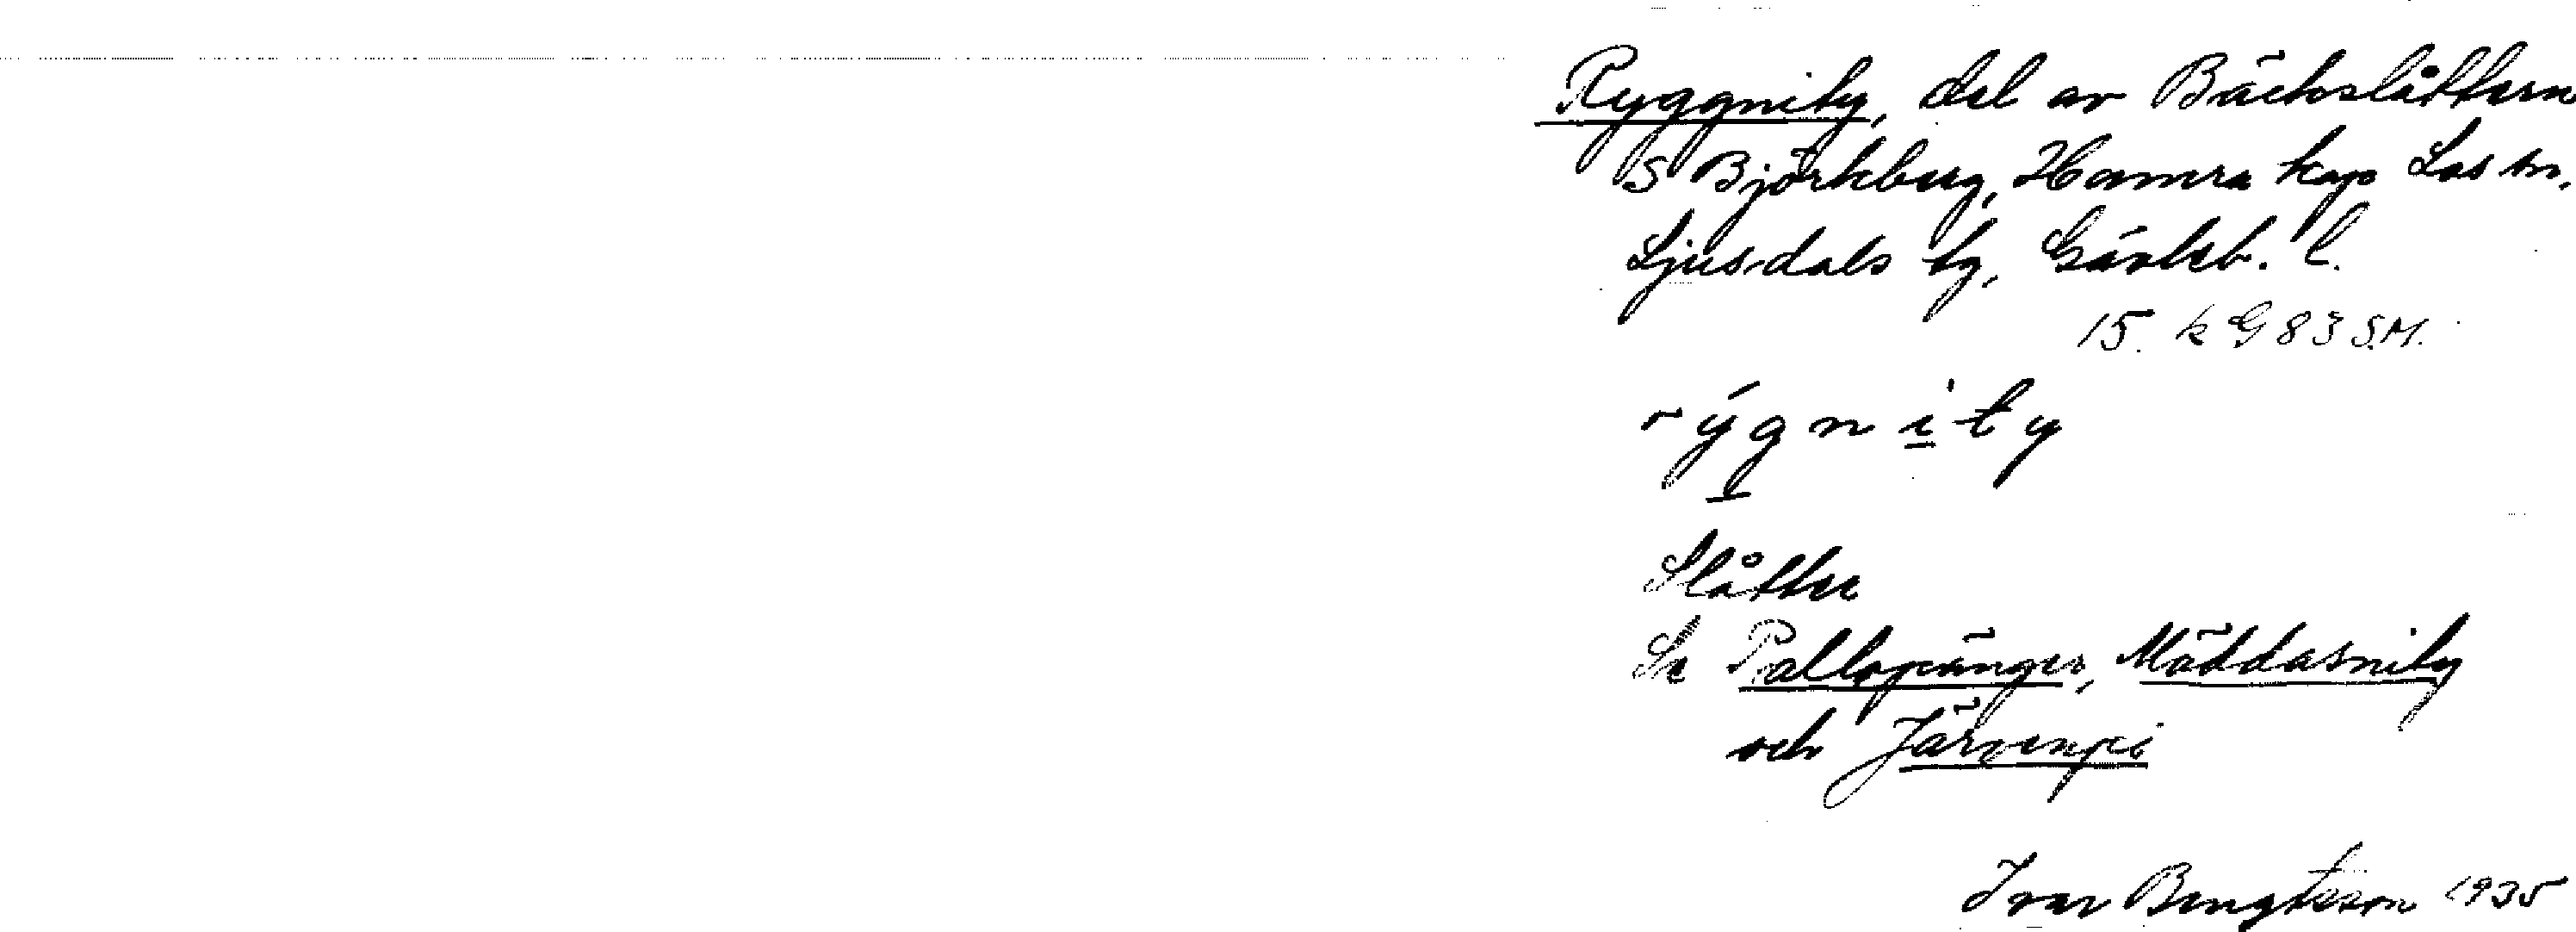 Ryggnity, del av Bäckslåttern
S Björkberg, Hamra kap Los sn,
Ljusdals tg, Gävleb. l.
15. k G 83 S.M.
rýgnity
Slåtter
Se Pallopänger, Mäddasnity
och Järvenpi
Ivar Bengtsson 1935